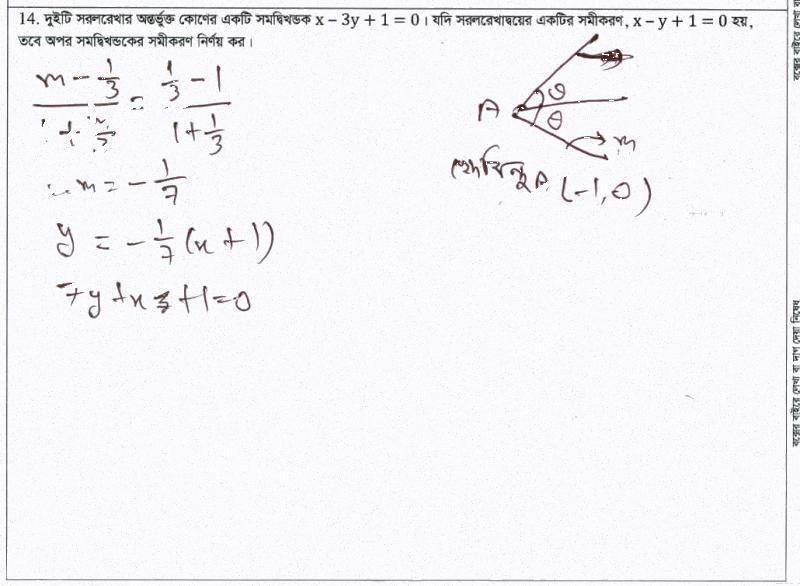 14. দুইটি সরলরেখার অন্তর্ভুক্ত কোণের একটি সমদ্বিখন্ডক x – 3y + 1 = 0। যদি সরলরেখাদ্বয়ের একটির সমীকরণ, x – y + 1 = 0 হয়,
তবে অপর সমদ্বিখন্ডকের সমীকরণ নির্ণয় কর।
(m - 1/3)/(1 + m/3) = (1/3 - 1)/(1 + 1/3)
∴ m = - 1/7
y = - 1/7 (x + 1)
7y + x + 1 = 0
A θ
θ
m
ছেদবিন্দু A (-1, 0)